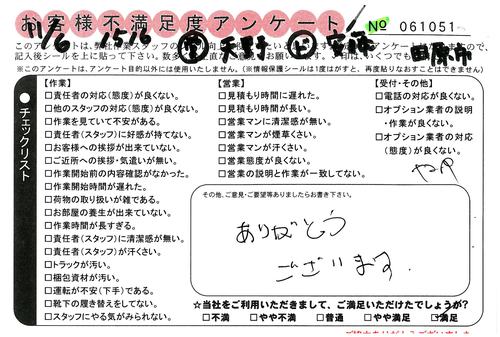 お客様不満足度アンケート
No 061051
11/6 1516
このアンケートは、弊社作業スタッフの
記入後シールを上に貼って下さい。
※このアンケートは、アンケート目的以外には使用いたしません。(※情報保護シールは1度はがすと、再度貼りなおすことはできません)
チェックリスト
【作業】
□責任者の対応(態度)が良くない。
□他のスタッフの対応(態度)が良くない。
□作業を見ていて不安がある。
□責任者(スタッフ)に好感が持てない。
□お客様への挨拶が出来ていない。
□ご近所への挨拶・気遣いが無い。
□作業開始前の内容確認がなかった。
□作業開始時間が遅れた。
□荷物の取り扱いが雑である。
□お部屋の養生が出来ていない。
□作業時間が長すぎる。
□責任者(スタッフ)に清潔感が無い。
□責任者(スタッフ)が汗くさい。
□トラックが汚い。
□梱包資材が汚い。
□運転が不安(下手)である。
□靴下の履き替えをしてない。
□スタッフにやる気がみられない。
【営業】
□見積もり時間に遅れた。
□見積もり時間が長い。
□営業マンに清潔感が無い。
□営業マンが煙草くさい。
□営業マンが汗くさい。
□営業態度が良くない。
□営業の説明と作業が一致してない。
【受付・その他】
□電話の対応が良くない。
□オプション業者の説明
・作業が良くない。
□オプション業者の対応
(態度)が良くない。
その他、ご意見・ご要望等ありましたらお書き下さい。
ありがとう
ございます。
☆当社をご利用いただきまして、ご満足いただけたでしょうか?
□不満 □やや不満 □普通 □やや満足 □満足